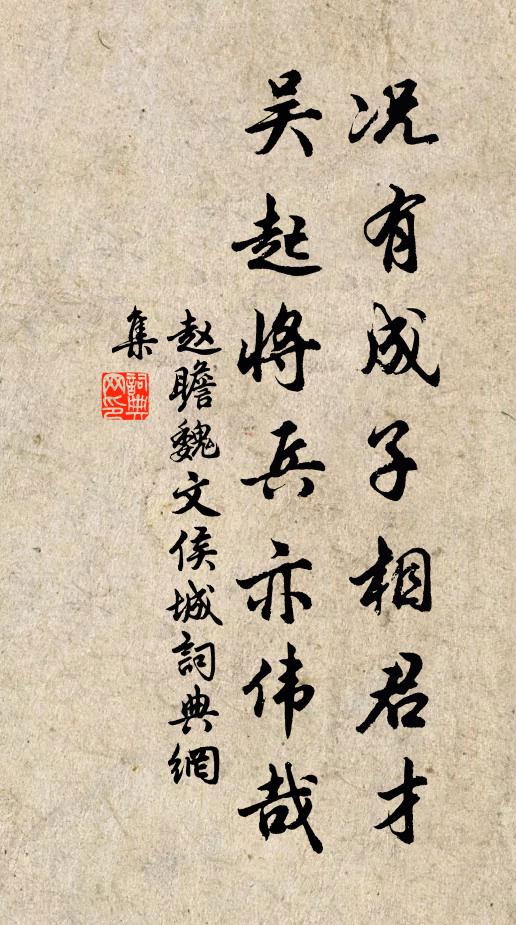 况有成子相君才
吴起将兵亦伟哉
赵瞻魏文侯城詞典網
集
詞典
网印